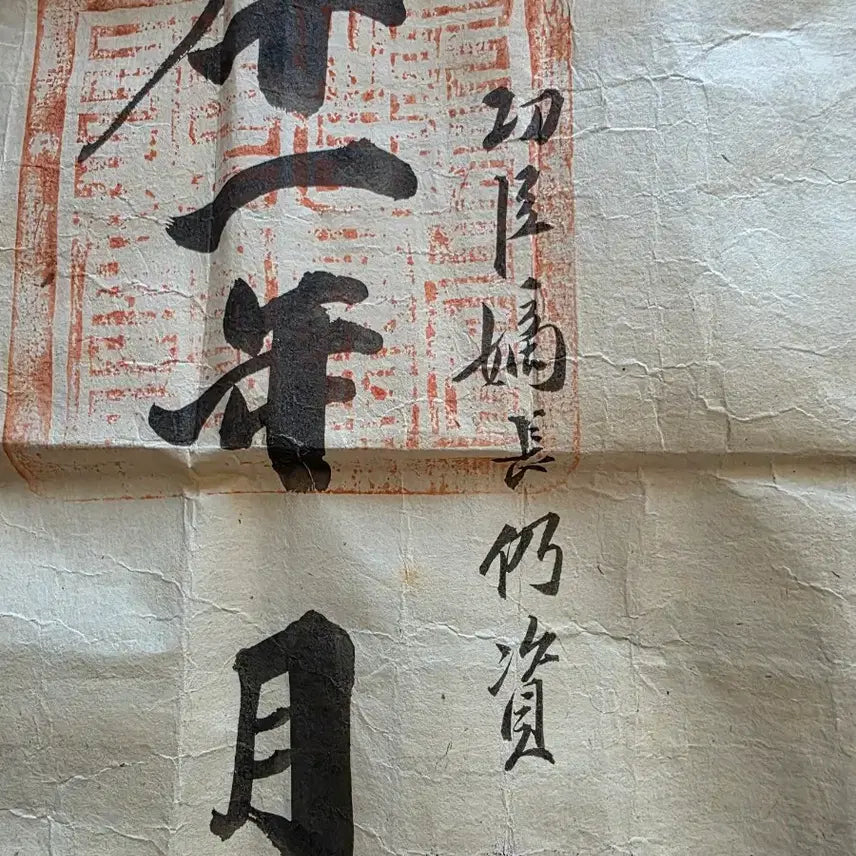 功臣嫡長仍資
一年月